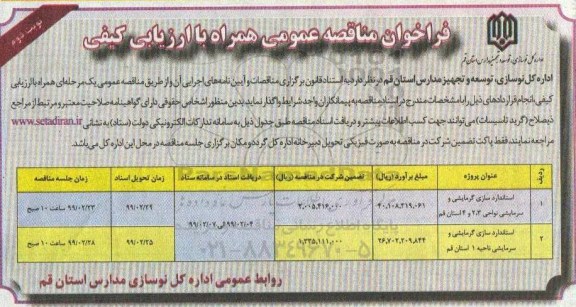 نوبت دوم
فراخوان مناقصه عمومی همراه با ارزیابی کیفی
اداره کل نوسازی، توسعه و تجهیز مدارس استان قم
اداره کل نوسازی، توسعه و تجهیز مدارس استان قم در نظر دارد به استناد قانون برگزاری مناقصات و آیین نامه‌های اجرایی آن و از طریق مناقصه عمومی یک مرحله‌ای همراه با ارزیابی
کیفی، انجام قراردادهای ذیل را با مشخصات مندرج در اسناد مناقصه به پیمانکاران واجد شرایط واگذار نماید. بدین منظور اشخاص حقوقی دارای گواهینامه صلاحیت معتبر و مرتبط از مراجع
ذیصلاح (گرید تاسیسات) می‌توانند جهت کسب اطلاعات بیشتر و دریافت اسناد مناقصه طبق جدول ذیل به سامانه تدارکات الکترونیکی دولت (ستاد) به نشانی www.setadiran.ir
مراجعه نمایند. فقط پاکت تضمین شرکت در مناقصه به صورت فیزیکی تحویل دبیرخانه اداره کل گردد و مکان برگزاری جلسه مناقصه در محل این اداره کل می‌باشد.
ردیف عنوان پروژه مبلغ برآورد (ریال) تضمین شرکت در مناقصه (ریال) دریافت اسناد در سامانه ستاد زمان تحویل اسناد زمان جلسه مناقصه
۱ استاندارد سازی گرمایشی و سرمایشی نواحی ۲،۳ و ۴ استان قم ۴۰،۱۰۸،۳۱۹،۰۶۱ ۲،۰۰۵،۴۱۶،۰۰۰ ۹۹/۰۲/۰۴ الی ۹۹/۰۲/۰۷ ۹۹/۰۲/۲۹ ساعت ۱۰ صبح
۲ استاندارد سازی گرمایشی و سرمایشی ناحیه ۱ استان قم ۲۶،۷۰۲،۲۰۹،۸۴۴ ۱،۳۳۵،۱۱۱،۰۰۰ ۹۹/۰۲/۲۵ ۹۹/۰۲/۲۸ ساعت ۱۰ صبح
۰۲۱-۸۸۳۴۹۶۷۰-۵
روابط عمومی اداره کل نوسازی مدارس استان قم